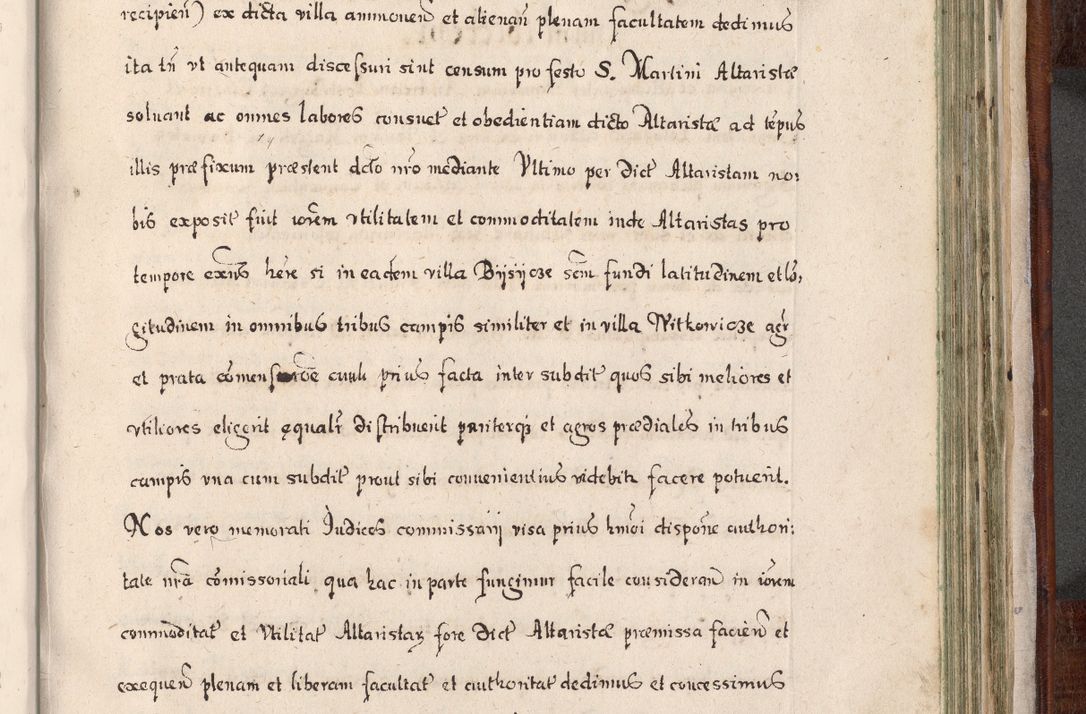 recipień) ex dicta villa ammoneń et alienań plenam facultatem dedimus
ita tń vt antequam discessuri sint censum pro festo S. Martini Altaristæ
soluant ac omnes labores consuet et obedientiam dicto Altaristæ ad tēpus
illis præfixum præstent dcto nro mediante Vltimo per dict Altaristam no:
bis exposit fuit iorem vtilitatem et commoditatem inde Altaristas pro
tempore exns here si in eadem villa Bysycze scm fundi latitudinem et lō,
gitudinem in omnibus tribus campis similiter et in villa Witkowicze agr
et prata cōmens cuili prius facta inter subdit quos sibi meliores et
vtiliores eligerit ęqualr distribuerit pariterq3 et agros prædiales in tribus
campis vna cum subdit prout sibi conuenientius videbitr facere potuerit.
Nos vero memorati Judices commissarij visa prius hmoi dispone authori:
tate nra cōmissoriali qua hac in parte fungimur facile considerań in iorem
commoditat et Vtilitat Altaristarz fore dict Altaristæ præmissa facień et
exequeń plenam et liberam facultat et authoritat dedimus et concessimus